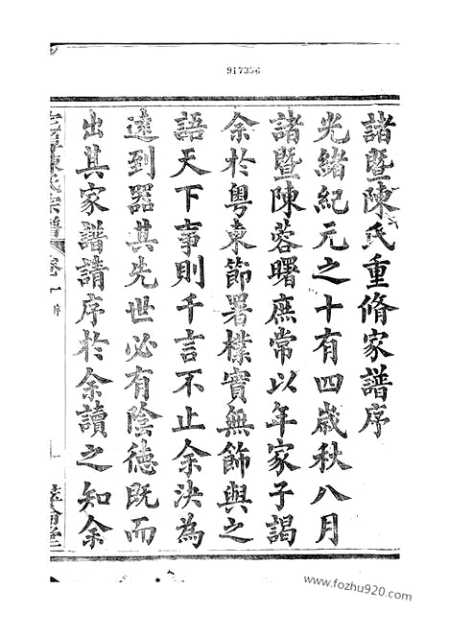 917356
諸暨陳氏重脩家譜序
光緒紀元之十有四歲秋八月
諸暨陳蓉曙庶常以年家子謁
余於粵東節署樸實無飾與之
語天下事則千言不止余決為
遠到器其先世必有陰德既而
出其家譜請序於余讀之知余
陳氏宗譜
卷一
www.fozhu920.com